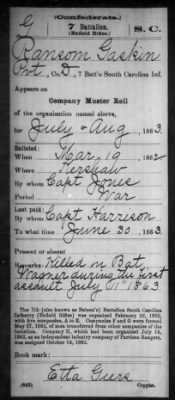 (Confederate.)
G 7 Battalion. S. C.
(Enfield Rifles)
Ransom Gaskin
Pvt, Co. D, 7 Batt'n South Carolina Inf.
Appears on
Company Muster Roll
of the organization named above,
for July & Aug, 1863.
Enlisted:
When Mar 19, 1862
Where Kershaw
By whom Capt Jones
Period War
Last paid:
By whom Capt Harrison
To what time June 30, 1863.
Present or absent
Remarks: Killed in Bat.
Wagner during the first
assault July 11" 1863
The 7th (also known as Nelson's) Battalion South Carolina
Infantry (Enfield Rifles) was organized February 22, 1862,
with five companies, A to E. Companies F and G were formed
May 27, 1862, of men transferred from other companies of the
battalion. Company H, which had been organized July 14,
1862, as an Independent company of Partisan Rangers, was
assigned October 14, 1862.
Book mark:
(642) Etta Giers
Copyist.